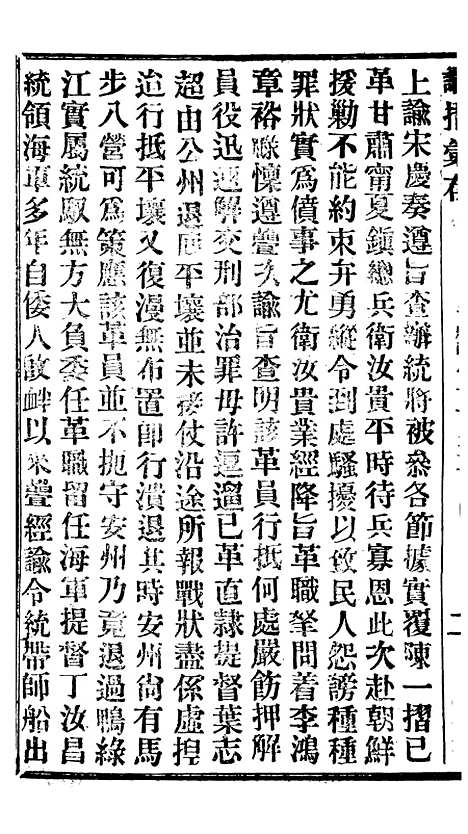 諭摺彙存
上諭宋慶奏遵旨查辦統將被叅各節據實覆陳一摺已
革甘肅甯夏鎮總兵衛汝貴平時待兵寡恩此次赴朝鮮
援勦不能約束弁勇縱令到處騷擾以致民人怨謗種種
罪狀實爲僨事之尤衛汝貴業經降旨革職拏問着李鴻
章裕賖懍遵疊次諭旨查明該革員行抵何處嚴飭押解
員役迅速解交刑部治罪毋許逗遛已革直隷提督葉志
超由公州退囘平壤並未接仗沿途所報戰狀盡係虛揑
迨行抵平壤又復漫無布置卽行潰退其時安州尙有馬
步八營可爲策應該革員並不扼守安州乃竟退過鴨綠
江實屬統馭無方大負委任革職留任海軍提督丁汝昌
統領海軍多年自倭人啟衅以來疊經諭令統帶師船出